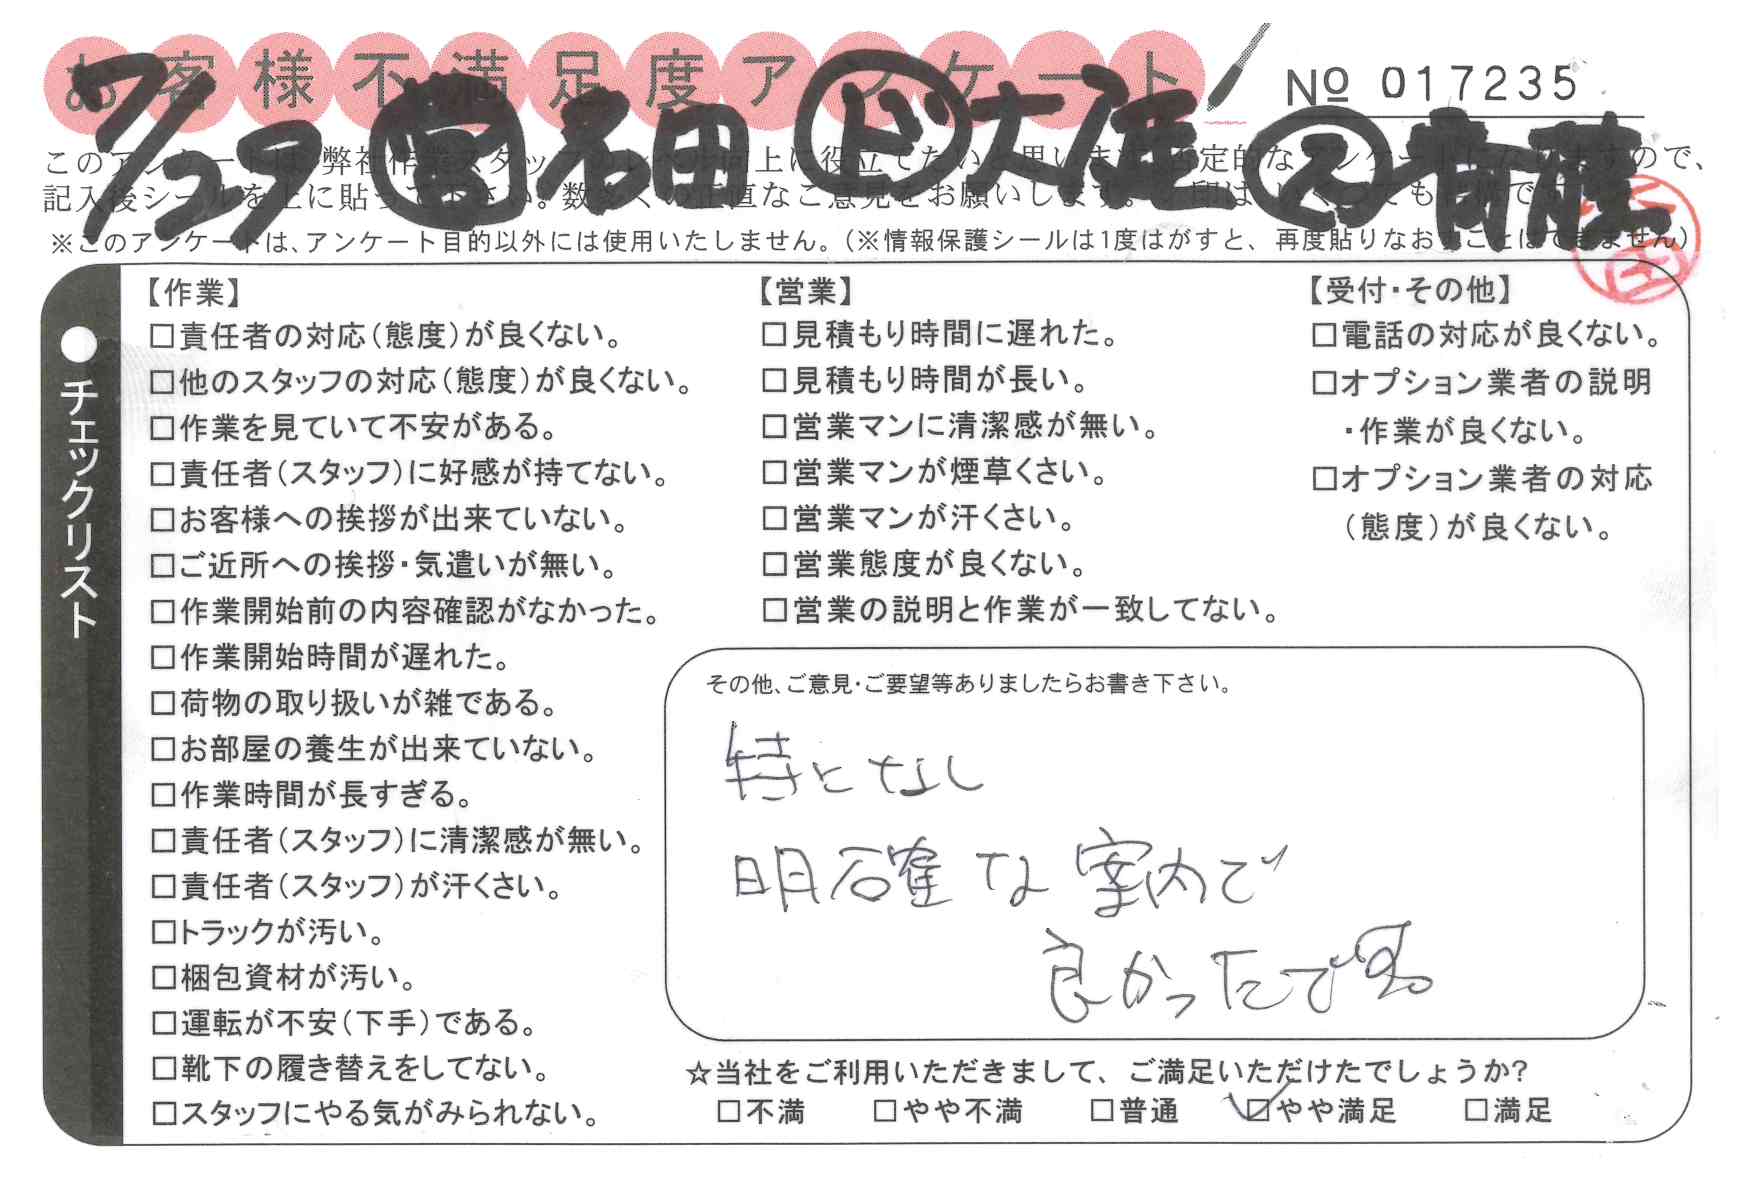 お客様不満足度アンケート
№ 017235
7/29 営 名田 ド 大 ス 斉藤
このアンケートは、弊社作業スタッフのレベル向上に役立てたいと思います。否定的なアンケートになりますので、
記入後シールを上に貼って下さい。数多くの正直なご意見をお願いします。
※このアンケートは、アンケート目的以外には使用いたしません。（※情報保護シールは1度はがすと、再度貼りなおすことはできません）
●チェックリスト
【作業】
□責任者の対応（態度）が良くない。
□他のスタッフの対応（態度）が良くない。
□作業を見ていて不安がある。
□責任者（スタッフ）に好感が持てない。
□お客様への挨拶が出来ていない。
□ご近所への挨拶・気遣いが無い。
□作業開始前の内容確認がなかった。
□作業開始時間が遅れた。
□荷物の取り扱いが雑である。
□お部屋の養生が出来ていない。
□作業時間が長すぎる。
□責任者（スタッフ）に清潔感が無い。
□責任者（スタッフ）が汗くさい。
□トラックが汚い。
□梱包資材が汚い。
□運転が不安（下手）である。
□靴下の履き替えをしてない。
□スタッフにやる気がみられない。
【営業】
□見積もり時間に遅れた。
□見積もり時間が長い。
□営業マンに清潔感が無い。
□営業マンが煙草くさい。
□営業マンが汗くさい。
□営業態度が良くない。
□営業の説明と作業が一致してない。
【受付・その他】
□電話の対応が良くない。
□オプション業者の説明
・作業が良くない。
□オプション業者の対応
（態度）が良くない。
その他、ご意見・ご要望等ありましたらお書き下さい。
特となし
明確な案内で
良かったです
☆当社をご利用いただきまして、ご満足いただけたでしょうか？
□不満 □やや不満 □普通 ☑やや満足 □満足